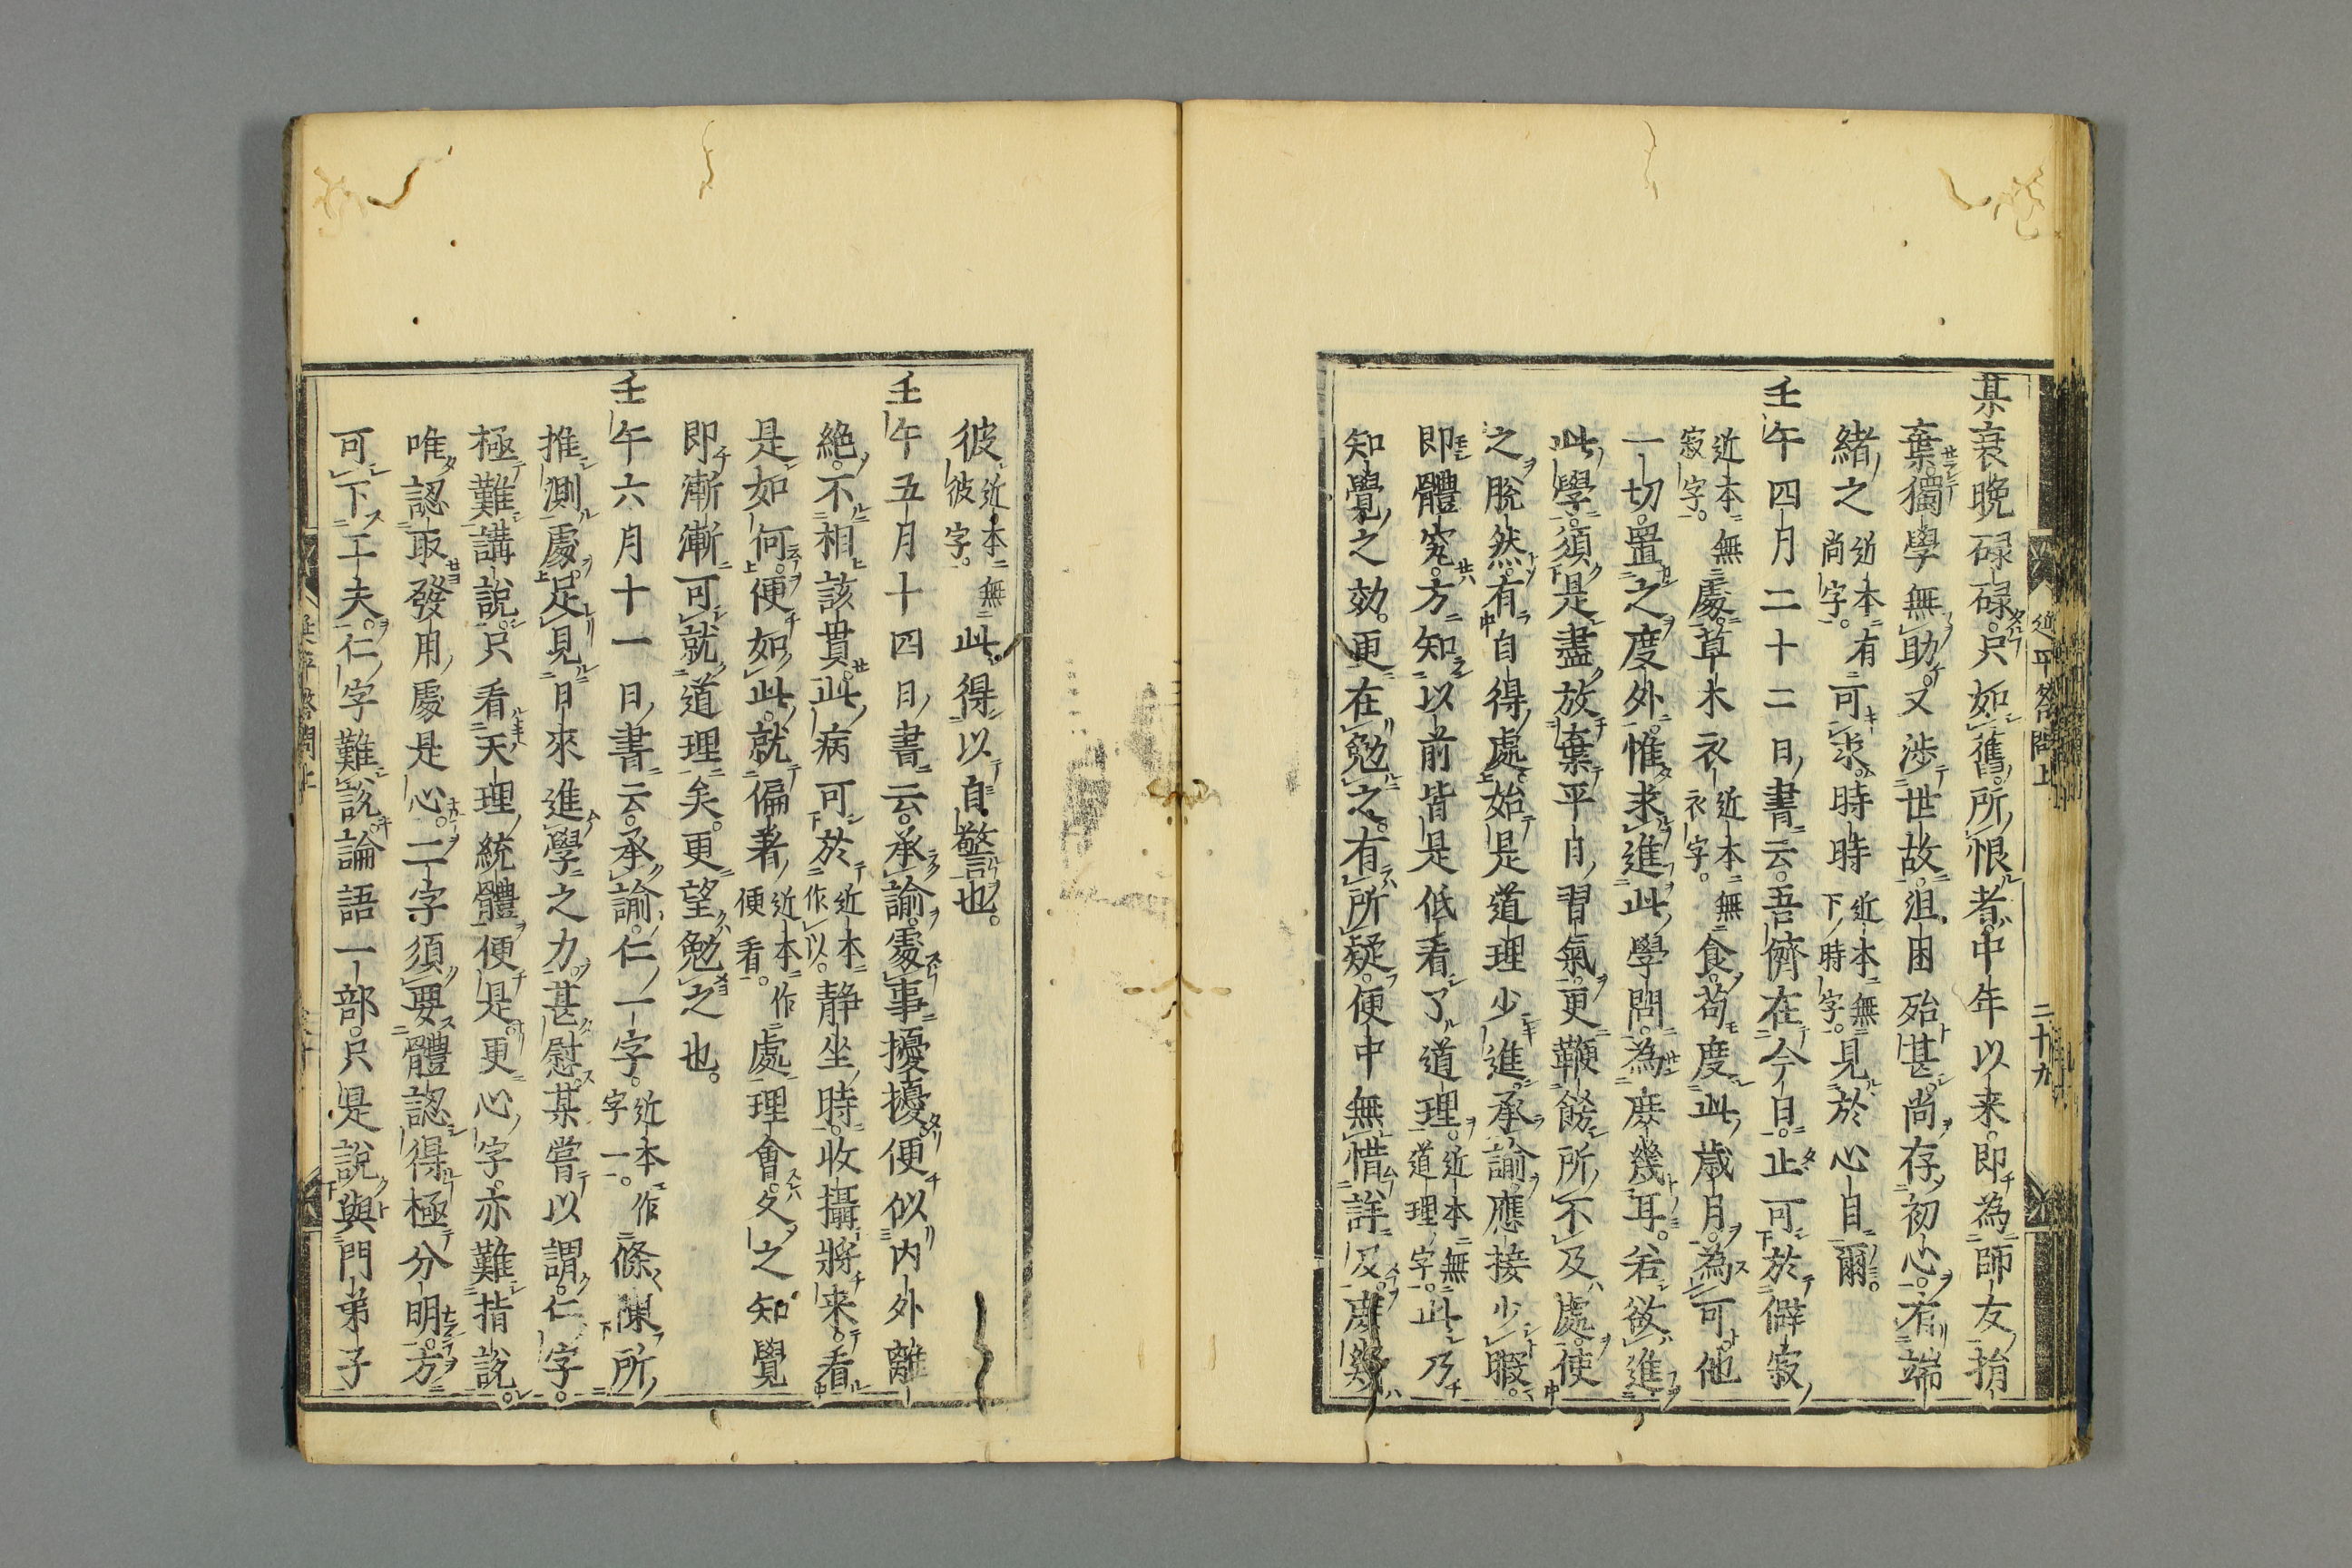 某衰晩碌碌只如舊所恨者中年以来即為師友捐
棄獨學無助又涉世故沮困殆甚尚存初心有端
緒之近本有尚字可求時時近本無下時字見於心目爾
壬午四月二十二日書云吾儕在今日止可於僻寂
近本無寂字處草木衣近本無衣字食苟度此歳月為可他
一切置之度外惟求進此學問為庶幾耳若欲進
此學須是盡放棄平日習氣更鞭飭所不及處使
之脫然有自得處始是道理少進承諭應接少暇
即體究方知以前皆是低看了道理近本無道理字此乃
知覺之効更在勉之有所疑便中無惜詳及庶幾
近平答問上
二十九
彼近本無彼字此得以自警也
壬午五月十四日書云承諭處事擾擾便似内外離
絶不相該貫此病可於近本作以静坐時收攝將来看
是如何便如此就偏著近本作便看處理會久之知覺
即漸漸可就道理矣更望勉之也
壬午六月十一日書云承諭仁一字近本作字一條陳所
推測處足見日來進學之力甚慰某嘗以謂仁字
極難講説只看天理統體便是更心字亦難指説
唯認取發用處是心二字須要體認得極分明方
可下工夫仁字難說論語一部只是説與門弟子